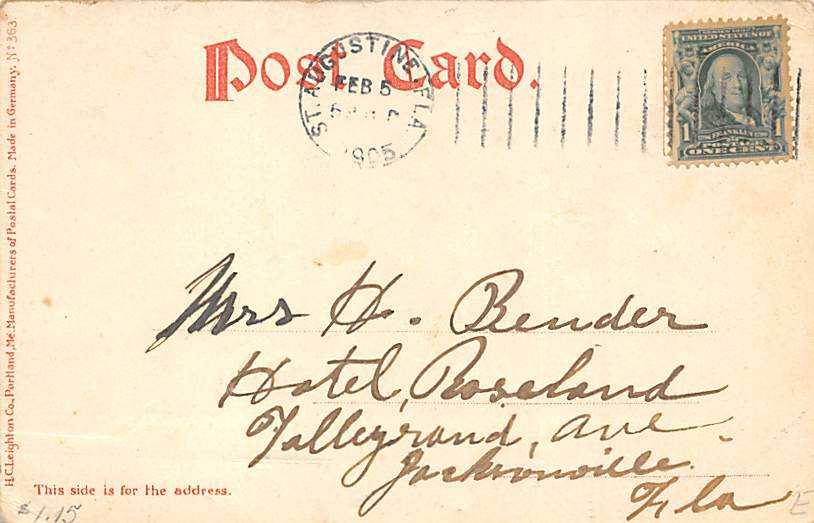 Post Card.
ST. AUGUSTINE, FLA
FEB 5
1905
SERIES 1902
UNITED STATES OF
AMERICA
1 FRANKLIN 1
POSTAGE
ONE CENT
Mrs H. Bender
Hotel, Roseland
Talleyrand, Ave.
Jacksonville.
Fla
This side is for the address.
$1.15
E
H.C. Leighton Co., Portland, Me. Manufacturers of Postal Cards. Made in Germany. No 363.